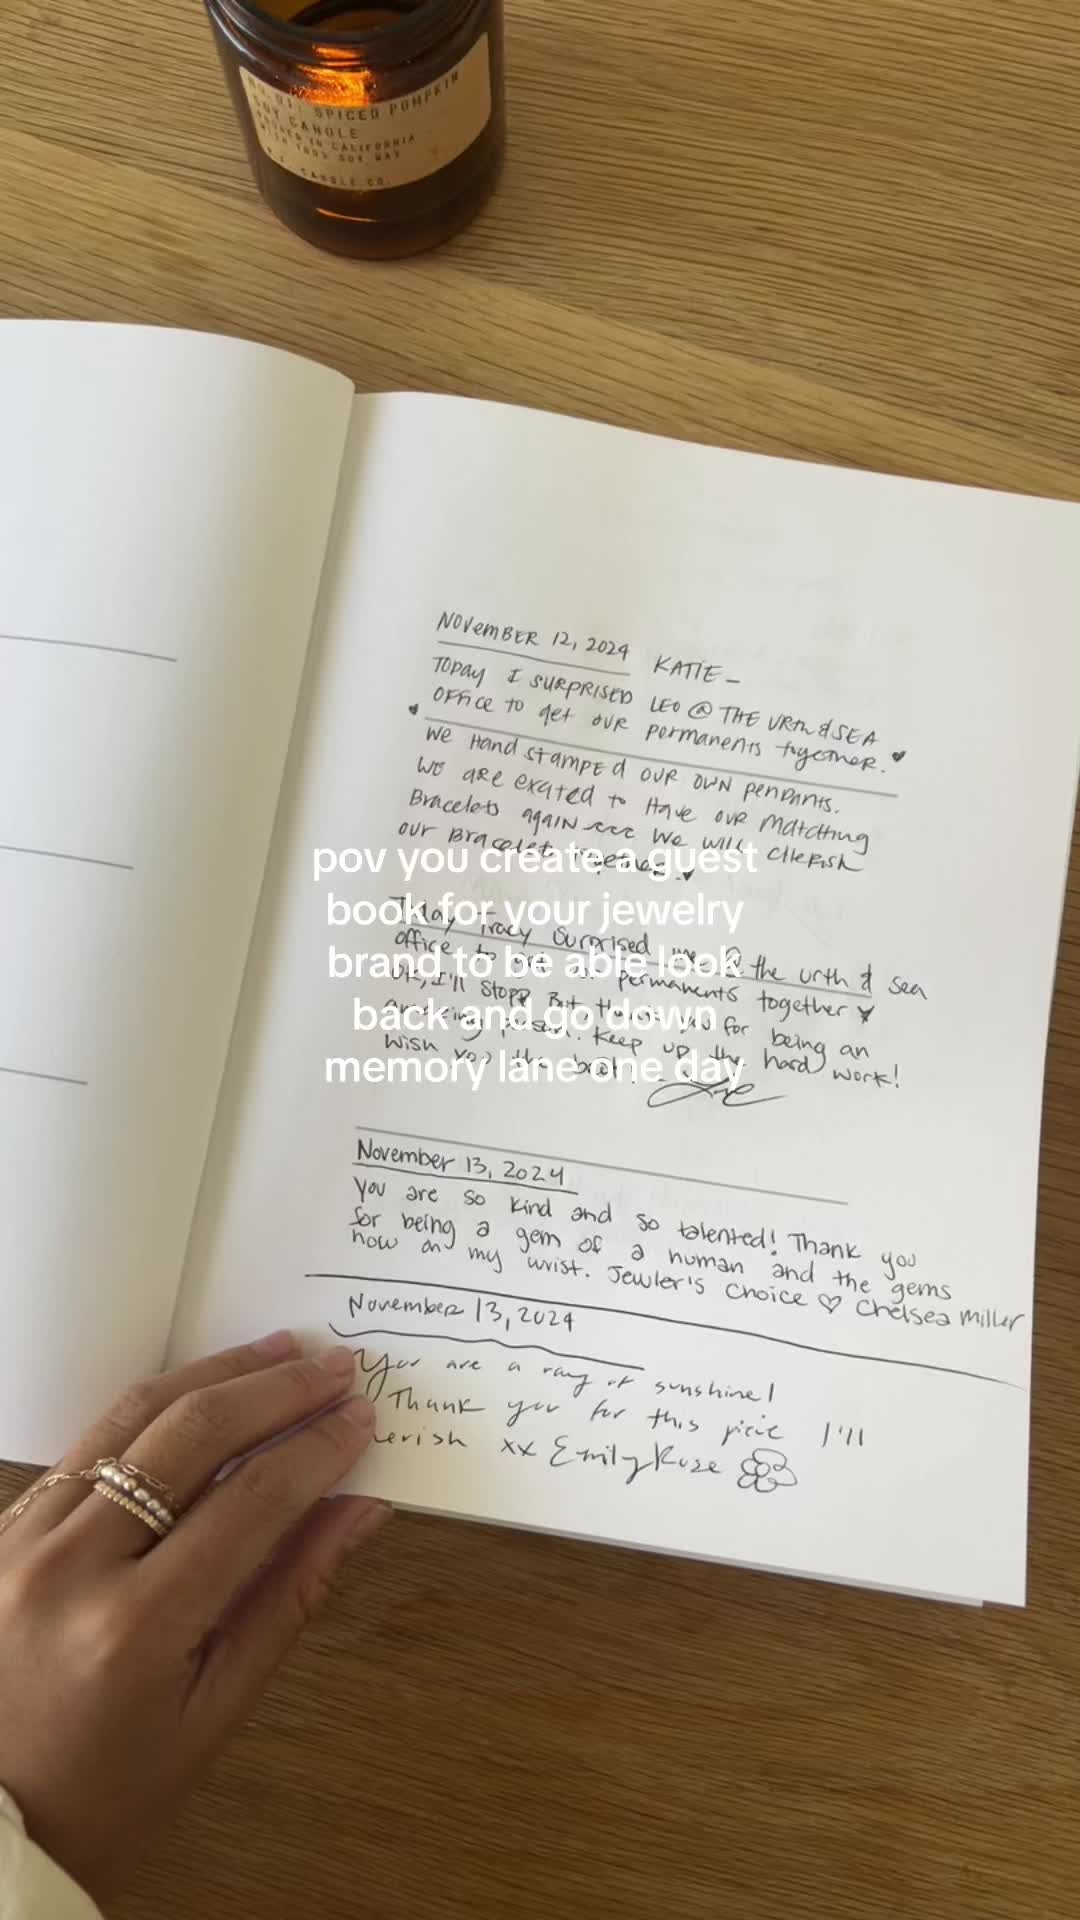 SPICED PUMPKIN
SOY CANDLE
CALIFORNIA
WITH 100% SOY WAX
CANDLE CO.
NOVEMBER 12, 2024 KATIE -
TODAY I SURPRISED LEO @ THE URTH & SEA
OFFICE TO get OUR permanents together.
We Hand stamped OUR OWN PENDANTS.
We are excited to Have OUR Matching
Bracelets again We will CHERISH
OUR Bracelets together.
pov you create a guest
book for your jewelry
brand to be able look
back and go down
memory lane one day
Today Tracy Surprised me @ the urth & sea
office to permanents together
OK, I'll stopp But, for being an
Keep up the hard work!
Wish you the best!
November 13, 2024
You are so kind and so talented! Thank you
for being a gem of a human and the gems
now on my wrist. Jewler's Choice ♡ Chelsea Miller
November 13, 2024
You are a ray of sunshine!
Thank you for this piece I'll
xx Emily Ruze